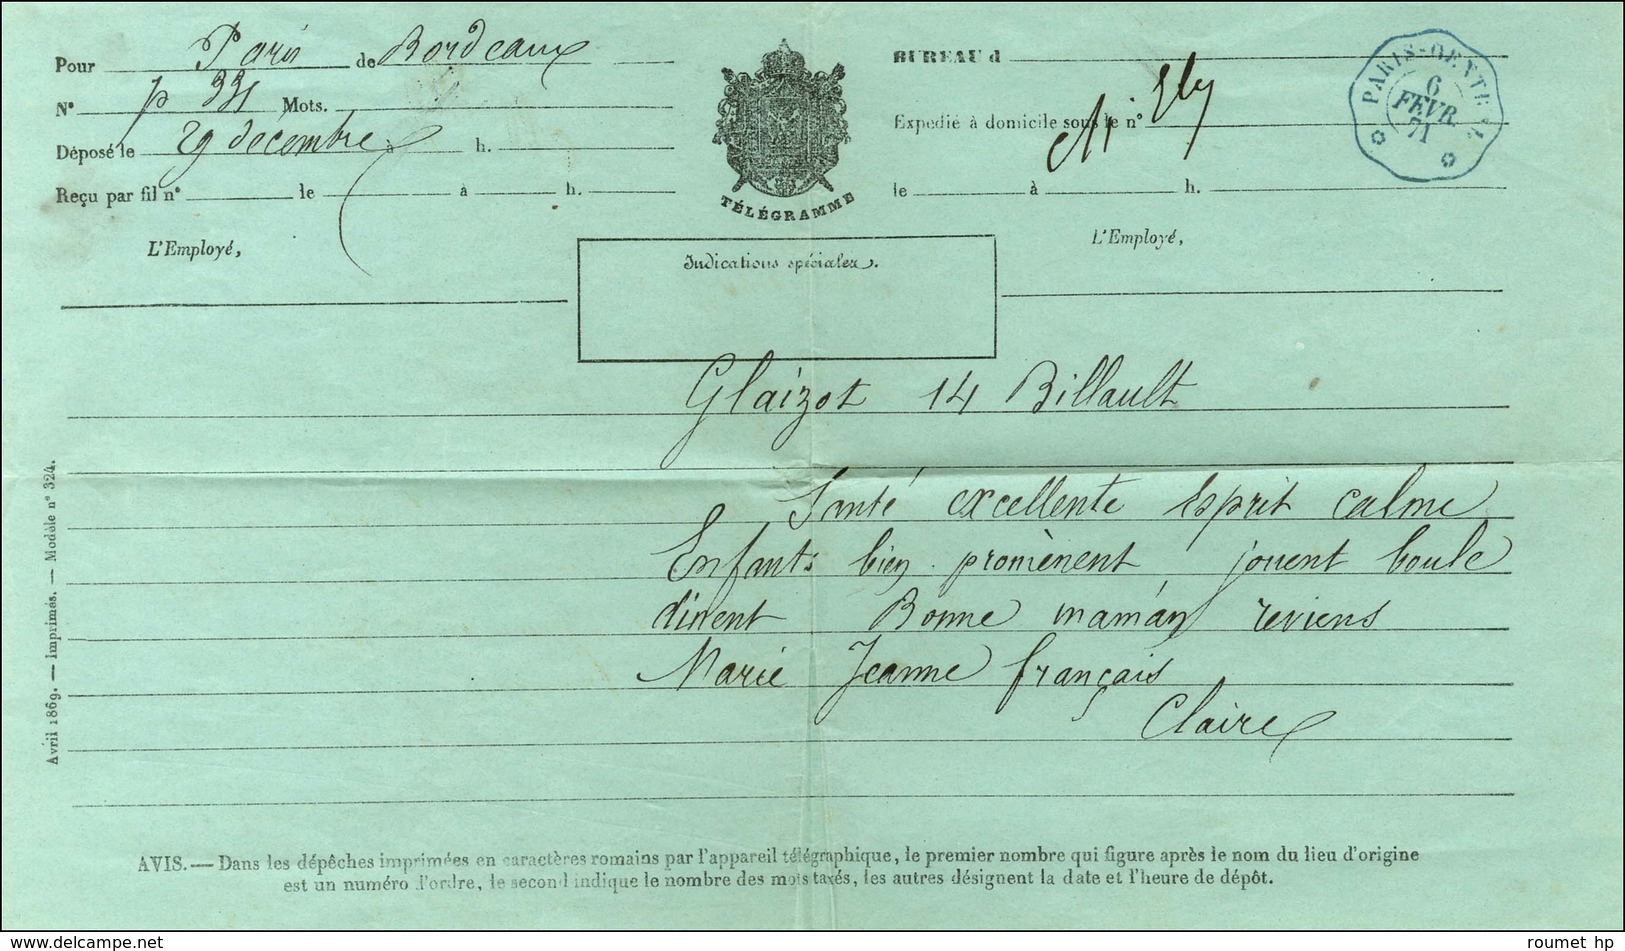 Pour Paris de Bordeaux
N° p 331 Mots.
Déposé le 29 décembre à h.
Reçu par fil n° le à h.
L'Employé,
TÉLÉGRAMME
BUREAU d
Expédié à domicile sous le n°
le à h.
L'Employé,
PARIS
6
FÉVR.
71
Indications spéciales.
Glaizot 14 Billault
Santé excellente esprit calme
Enfants bien promènent jouent boule
dinent Bonne maman reviens
Marie Jeanne français
Claire
Avril 1869. — Imprimés. — Modèle n° 324.
AVIS. — Dans les dépêches imprimées en caractères romains par l'appareil télégraphique, le premier nombre qui figure après le nom du lieu d'origine
est un numéro d'ordre, le second indique le nombre des mots taxés, les autres désignent la date et l'heure de dépôt.
www.delcampe.net
roumet hp